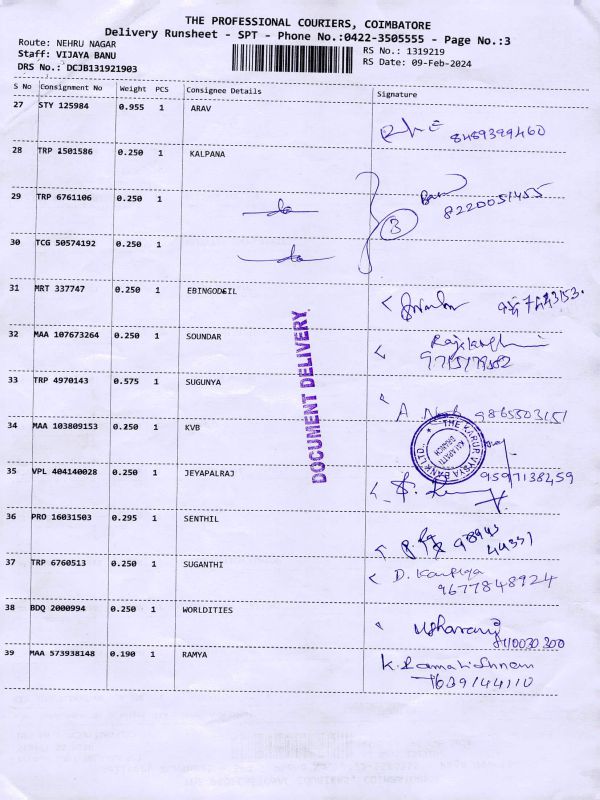 THE PROFESSIONAL COURIERS, COIMBATORE
Delivery Runsheet - SPT - Phone No.:0422-3505555 - Page No.:3
Route: NEHRU NAGAR
Staff: VIJAYA BANU
DRS No.: DCJB131921903
RS No.: 1319219
RS Date: 09-Feb-2024
S No Consignment No Weight PCS Consignee Details Signature
27 STY 125984 0.955 1 ARAV
8489399460
28 TRP 1501586 0.250 1 KALPANA
29 TRP 6761106 0.250 1
8220051455
3
30 TCG 50574192 0.250 1
31 MRT 337747 0.250 1 EBINGODEIL
32 MAA 107673264 0.250 1 SOUNDAR
33 TRP 4970143 0.575 1 SUGUNYA
A 9865503151
34 MAA 103809153 0.250 1 KVB
THE KARUR VYSYA BANK LTD.,
BRANCH
35 VPL 404140028 0.250 1 JEYAPALRAJ
9597138459
36 PRO 16031503 0.295 1 SENTHIL
98943
44351
37 TRP 6760513 0.250 1 SUGANTHI
D. Kaupiya
9677848924
38 BDQ 2000994 0.250 1 WORLDITIES
39 MAA 573938148 0.190 1 RAMYA
K. Ramakishnan
7639144110
DOCUMENT DELIVERY